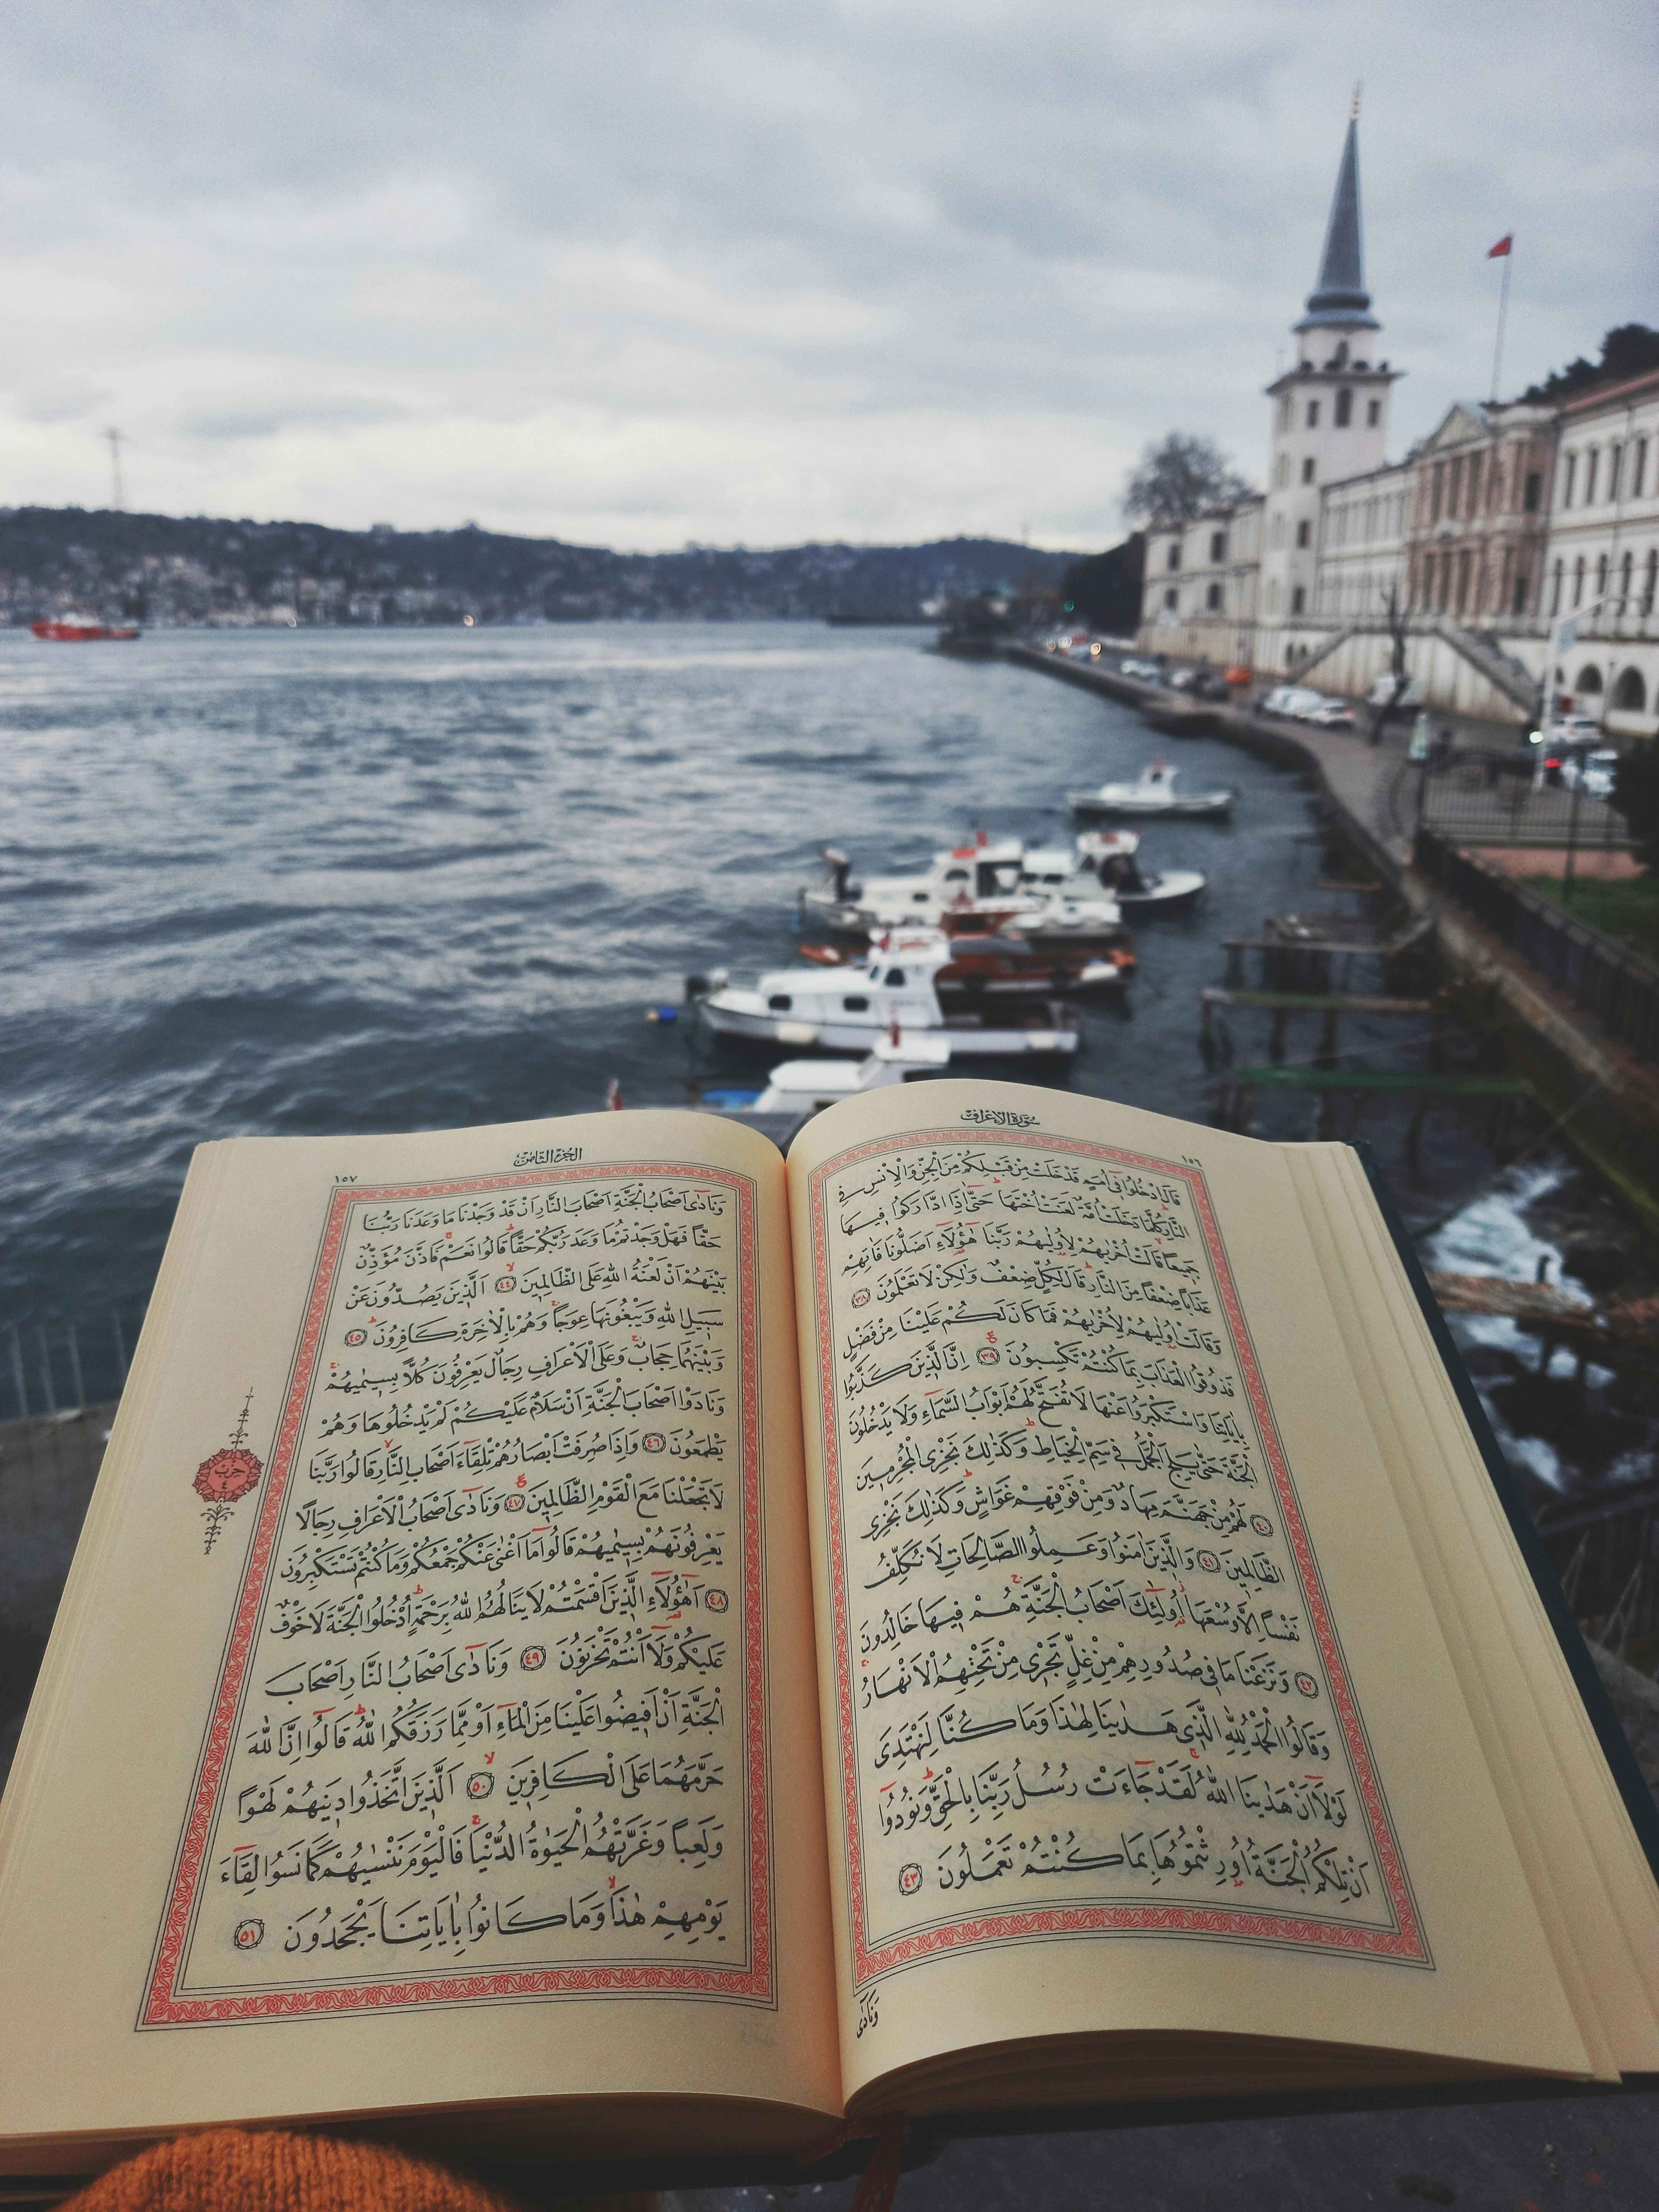 سورة الاعراف
١٥٦
قَالَ ادْخُلُوا فٖٓي اُمَمٍ قَدْ خَلَتْ مِنْ قَبْلِكُمْ مِنَ الْجِنِّ وَالْاِنْسِ فِي
النَّارِ كُلَّمَا دَخَلَتْ اُمَّةٌ لَعَنَتْ اُخْتَهَا حَتّٰٓى اِذَا ادَّارَكُوا فٖيهَا
جَمٖيعاً قَالَتْ اُخْرٰيهُمْ لِاُو۫لٰيهُمْ رَبَّنَا هٰٓؤُ۬لَٓاءِ اَضَلُّونَا فَاٰتِهِمْ
عَذَاباً ضِعْفاً مِنَ النَّارِ قَالَ لِكُلٍّ ضِعْفٌ وَلٰكِنْ لَا تَعْلَمُونَ ٣٨
وَقَالَتْ اُو۫لٰيهُمْ لِاُخْرٰيهُمْ فَمَا كَانَ لَكُمْ عَلَيْنَا مِنْ فَضْلٍ
فَذُوقُوا الْعَذَابَ بِمَا كُنْتُمْ تَكْسِبُونَ ٣٩ اِنَّ الَّذٖينَ كَذَّبُوا
بِاٰيَاتِنَا وَاسْتَكْبَرُوا عَنْهَا لَا تُفَتَّحُ لَهُمْ اَبْوَابُ السَّمَٓاءِ وَلَا يَدْخُلُونَ
الْجَنَّةَ حَتّٰى يَلِجَ الْجَمَلُ فٖي سَمِّ الْخِيَاطِ وَكَذٰلِكَ نَجْزِي الْمُجْرِمٖينَ
٤٠ لَهُمْ مِنْ جَهَنَّمَ مِهَادٌ وَمِنْ فَوْقِهِمْ غَوَاشٍ وَكَذٰلِكَ نَجْزِي
الظَّالِمٖينَ ٤١ وَالَّذٖينَ اٰمَنُوا وَعَمِلُوا الصَّالِحَاتِ لَا نُكَلِّفُ
نَفْساً اِلَّا وُسْعَهَا اُو۬لٰٓئِكَ اَصْحَابُ الْجَنَّةِ هُمْ فٖيهَا خَالِدُونَ
٤٢ وَنَزَعْنَا مَا فٖي صُدُورِهِمْ مِنْ غِلٍّ تَجْرٖي مِنْ تَحْتِهِمُ الْاَنْهَارُ
وَقَالُوا الْحَمْدُ لِلّٰهِ الَّذٖي هَدٰينَا لِهٰذَا وَمَا كُنَّا لِنَهْتَدِيَ
لَوْلَٓا اَنْ هَدٰينَا اللّٰهُ لَقَدْ جَٓاءَتْ رُسُلُ رَبِّنَا بِالْحَقِّ وَنُودُٓوا
اَنْ تِلْكُمُ الْجَنَّةُ اُو۫رِثْتُمُوهَا بِمَا كُنْتُمْ تَعْمَلُونَ ٤٣
وَنَادٰٓى
الجزء الثامن
١٥٧
وَنَادٰٓى اَصْحَابُ الْجَنَّةِ اَصْحَابَ النَّارِ اَنْ قَدْ وَجَدْنَا مَا وَعَدَنَا رَبُّنَا
حَقّاً فَهَلْ وَجَدْتُمْ مَا وَعَدَ رَبُّكُمْ حَقّاً قَالُوا نَعَمْ فَاَذَّنَ مُؤَذِّنٌ
بَيْنَهُمْ اَنْ لَعْنَةُ اللّٰهِ عَلَى الظَّالِمٖينَ ٤٤ اَلَّذٖينَ يَصُدُّونَ عَنْ
سَبٖيلِ اللّٰهِ وَيَبْغُونَهَا عِوَجاً وَهُمْ بِالْاٰخِرَةِ كَافِرُونَ ٤٥
وَبَيْنَهُمَا حِجَابٌ وَعَلَى الْاَعْرَافِ رِجَالٌ يَعْرِفُونَ كُلّاً بِسٖيمٰيهُمْ
وَنَادَوْا اَصْحَابَ الْجَنَّةِ اَنْ سَلَامٌ عَلَيْكُمْ لَمْ يَدْخُلُوهَا وَهُمْ
يَطْمَعُونَ ٤٦ وَاِذَا صُرِفَتْ اَبْصَارُهُمْ تِلْقَٓاءَ اَصْحَابِ النَّارِ قَالُوا رَبَّنَا
لَا تَجْعَلْنَا مَعَ الْقَوْمِ الظَّالِمٖينَ ٤٧ وَنَادٰٓى اَصْحَابُ الْاَعْرَافِ رِجَالاً
يَعْرِفُونَهُمْ بِسٖيمٰيهُمْ قَالُوا مَٓا اَغْنٰى عَنْكُمْ جَمْعُكُمْ وَمَا كُنْتُمْ تَسْتَكْبِرُونَ
٤٨ اَهٰٓؤُ۬لَٓاءِ الَّذٖينَ اَقْسَمْتُمْ لَا يَنَالُهُمُ اللّٰهُ بِرَحْمَةٍ اُدْخُلُوا الْجَنَّةَ لَا خَوْفٌ
عَلَيْكُمْ وَلَٓا اَنْتُمْ تَحْزَنُونَ ٤٩ وَنَادٰٓى اَصْحَابُ النَّارِ اَصْحَابَ
الْجَنَّةِ اَنْ اَفٖيضُوا عَلَيْنَا مِنَ الْمَٓاءِ اَوْ مِمَّا رَزَقَكُمُ اللّٰهُ قَالُٓوا اِنَّ اللّٰهَ
حَرَّمَهُمَا عَلَى الْكَافِرٖينَ ٥٠ اَلَّذٖينَ اتَّخَذُوا دٖينَهُمْ لَهْواً
وَلَعِباً وَغَرَّتْهُمُ الْحَيٰوةُ الدُّنْيَا فَالْيَوْمَ نَنْسٰيهُمْ كَمَا نَسُوا لِقَٓاءَ
يَوْمِهِمْ هٰذَا وَمَا كَانُوا بِاٰيَاتِنَا يَجْحَدُونَ ٥١
حزب
٤